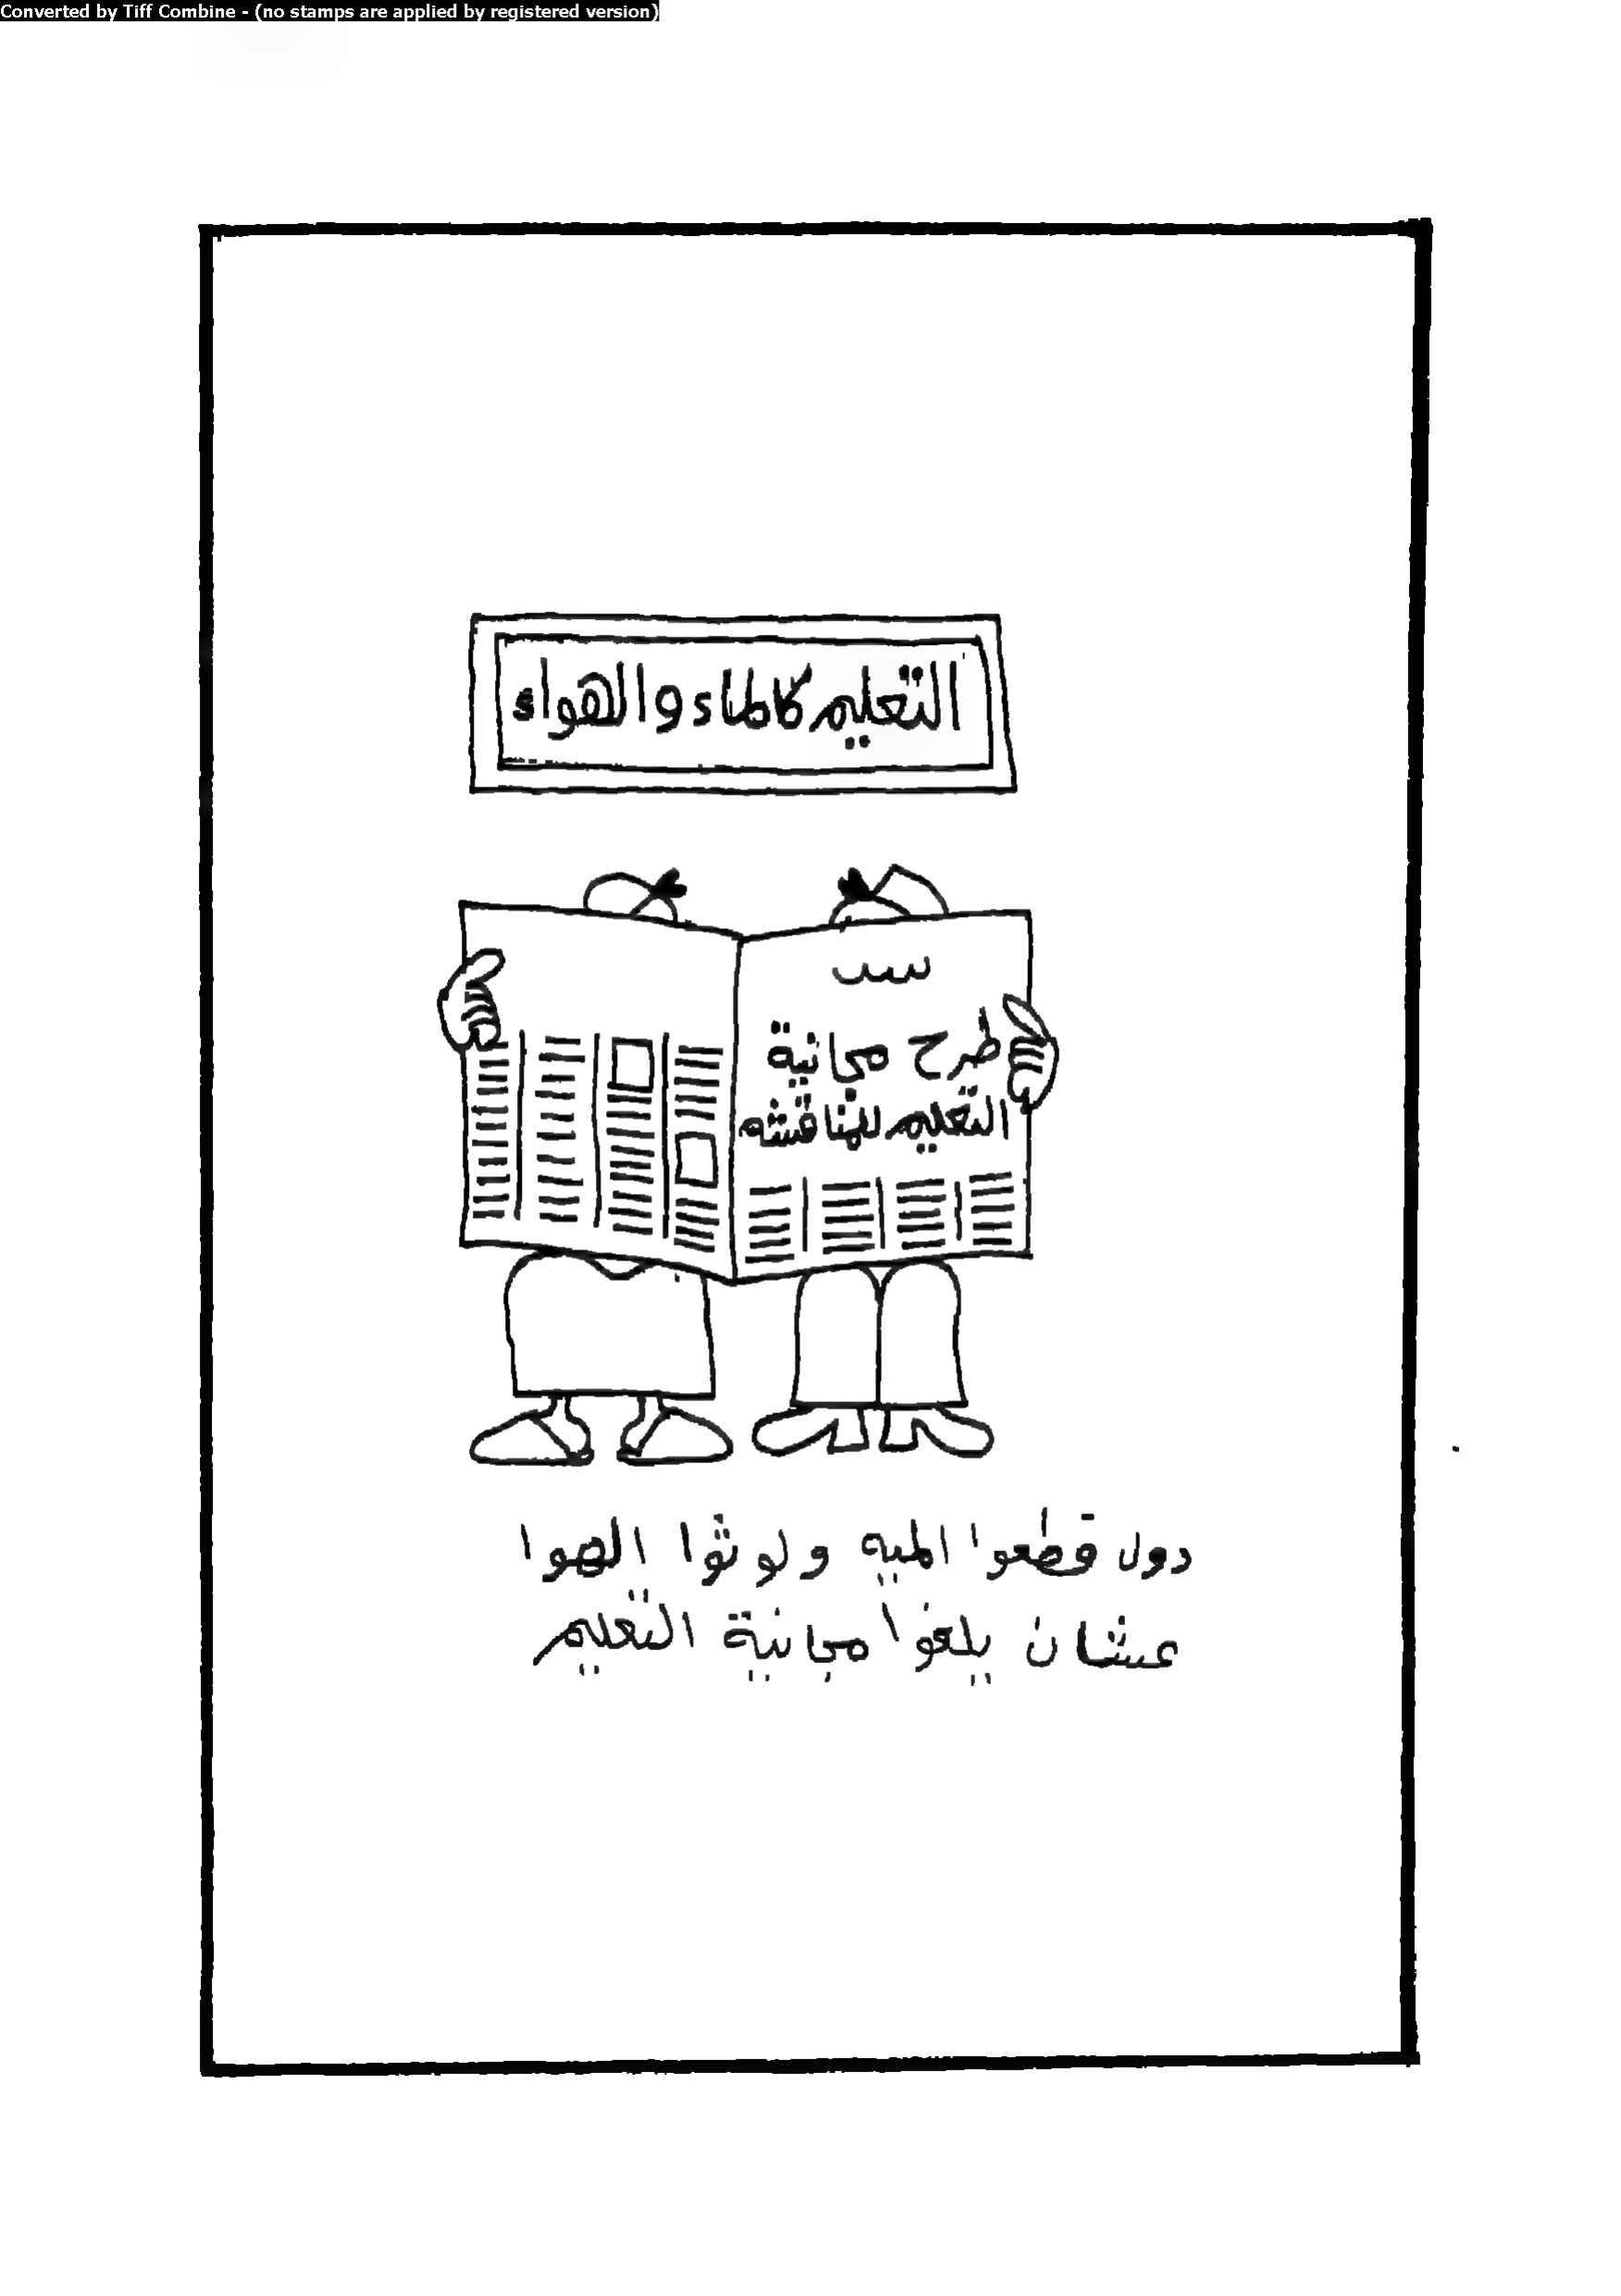 Converted by Tiff Combine - (no stamps are applied by registered version)
التعليم كالماء والهواء
طرح مجانية
التعليم للمناقشه
دول قطعوا الميه ولوثوا الهوا
عشان يلغوا مجانية التعليم